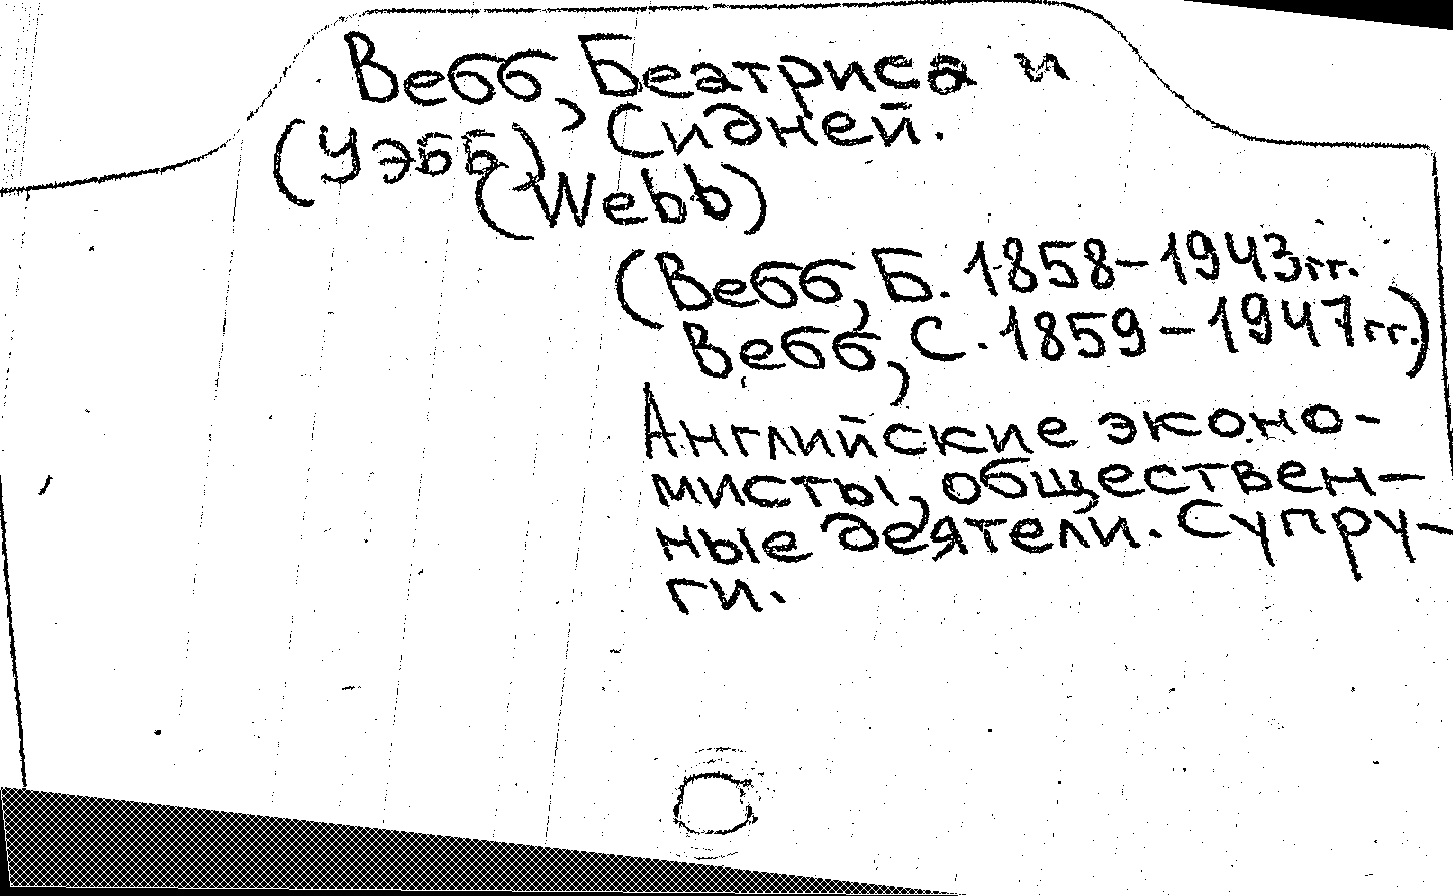 Вебб, Беатриса и
(Уэбб) Сидней.
(Webb)
(Вебб, Б. 1858-1943гг.
Вебб, С. 1859-1947гг.)
Английские эконо-
мисты, обществен-
ные деятели. Супру-
ги.